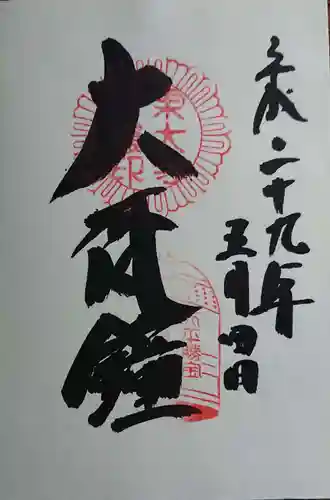 平成二十九年
五月四日
大梵鐘